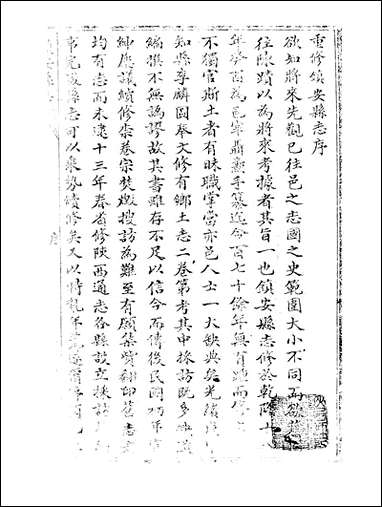 重修鎮安縣志序
欲知將來先觀已往邑之志國之史範圍大小不同而欲
往陳蹟以為將來考據者其旨一也鎮安縣志修於乾隆
年癸酉為邑宰聶燾手纂迄今百七十餘年無有踵而
不獨官斯土者有昧職掌當亦邑人士一大缺典矣光緒
知縣李麟圖奉文修有鄉土志二卷第考其中採訪既多
編撰不無譌謬故其書雖存不足以信今而傳後民國
紳屢議續修柰卷宗焚燬搜訪為難至有願集貲翻印舊志
均有志而未逮十三年春省修陝西通志各縣設立採訪
事完竣縣志可以乘勢續修矣又以時